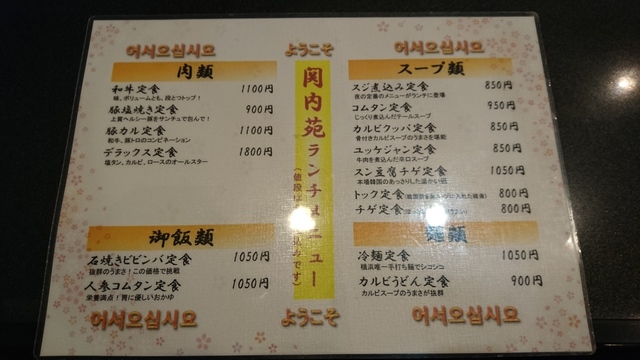 어서오십시오
ようこそ
어서오십시오
肉類
和牛定食 1100円
味、ボリュームとも、段とつトップ！
豚塩焼き定食 900円
上質ヘルシー豚をサンチュで包んで！
豚カル定食 1100円
和牛、豚トロのコンビネーション
デラックス定食 1800円
塩タン、カルビ、ロースのオールスター
御飯類
石焼きビビンバ定食 1050円
抜群のうまさ！この価格で挑戦
人参コムタン定食 1050円
栄養満点！胃に優しいおかゆ
関内苑ランチメニュー
(値段は込みです)
スープ類
スジ煮込み定食 850円
夜の定番のメニューがランチに登場
コムタン定食 950円
じっくり煮込んだテールスープ
カルビクッパ定食 850円
骨付きカルビスープのうまさを堪能
ユッケジャン定食 850円
牛肉を煮込んだ辛口スープ
スン豆腐チゲ定食 1050円
本場韓国のあっさりした温かい鍋
トック定食 800円
チゲ定食 800円
麺類
冷麺定食 1050円
横浜唯一手打ち麺でシコシコ
カルビうどん定食 900円
カルビスープのうまさが抜群
어서오십시오
ようこそ
어서오십시오